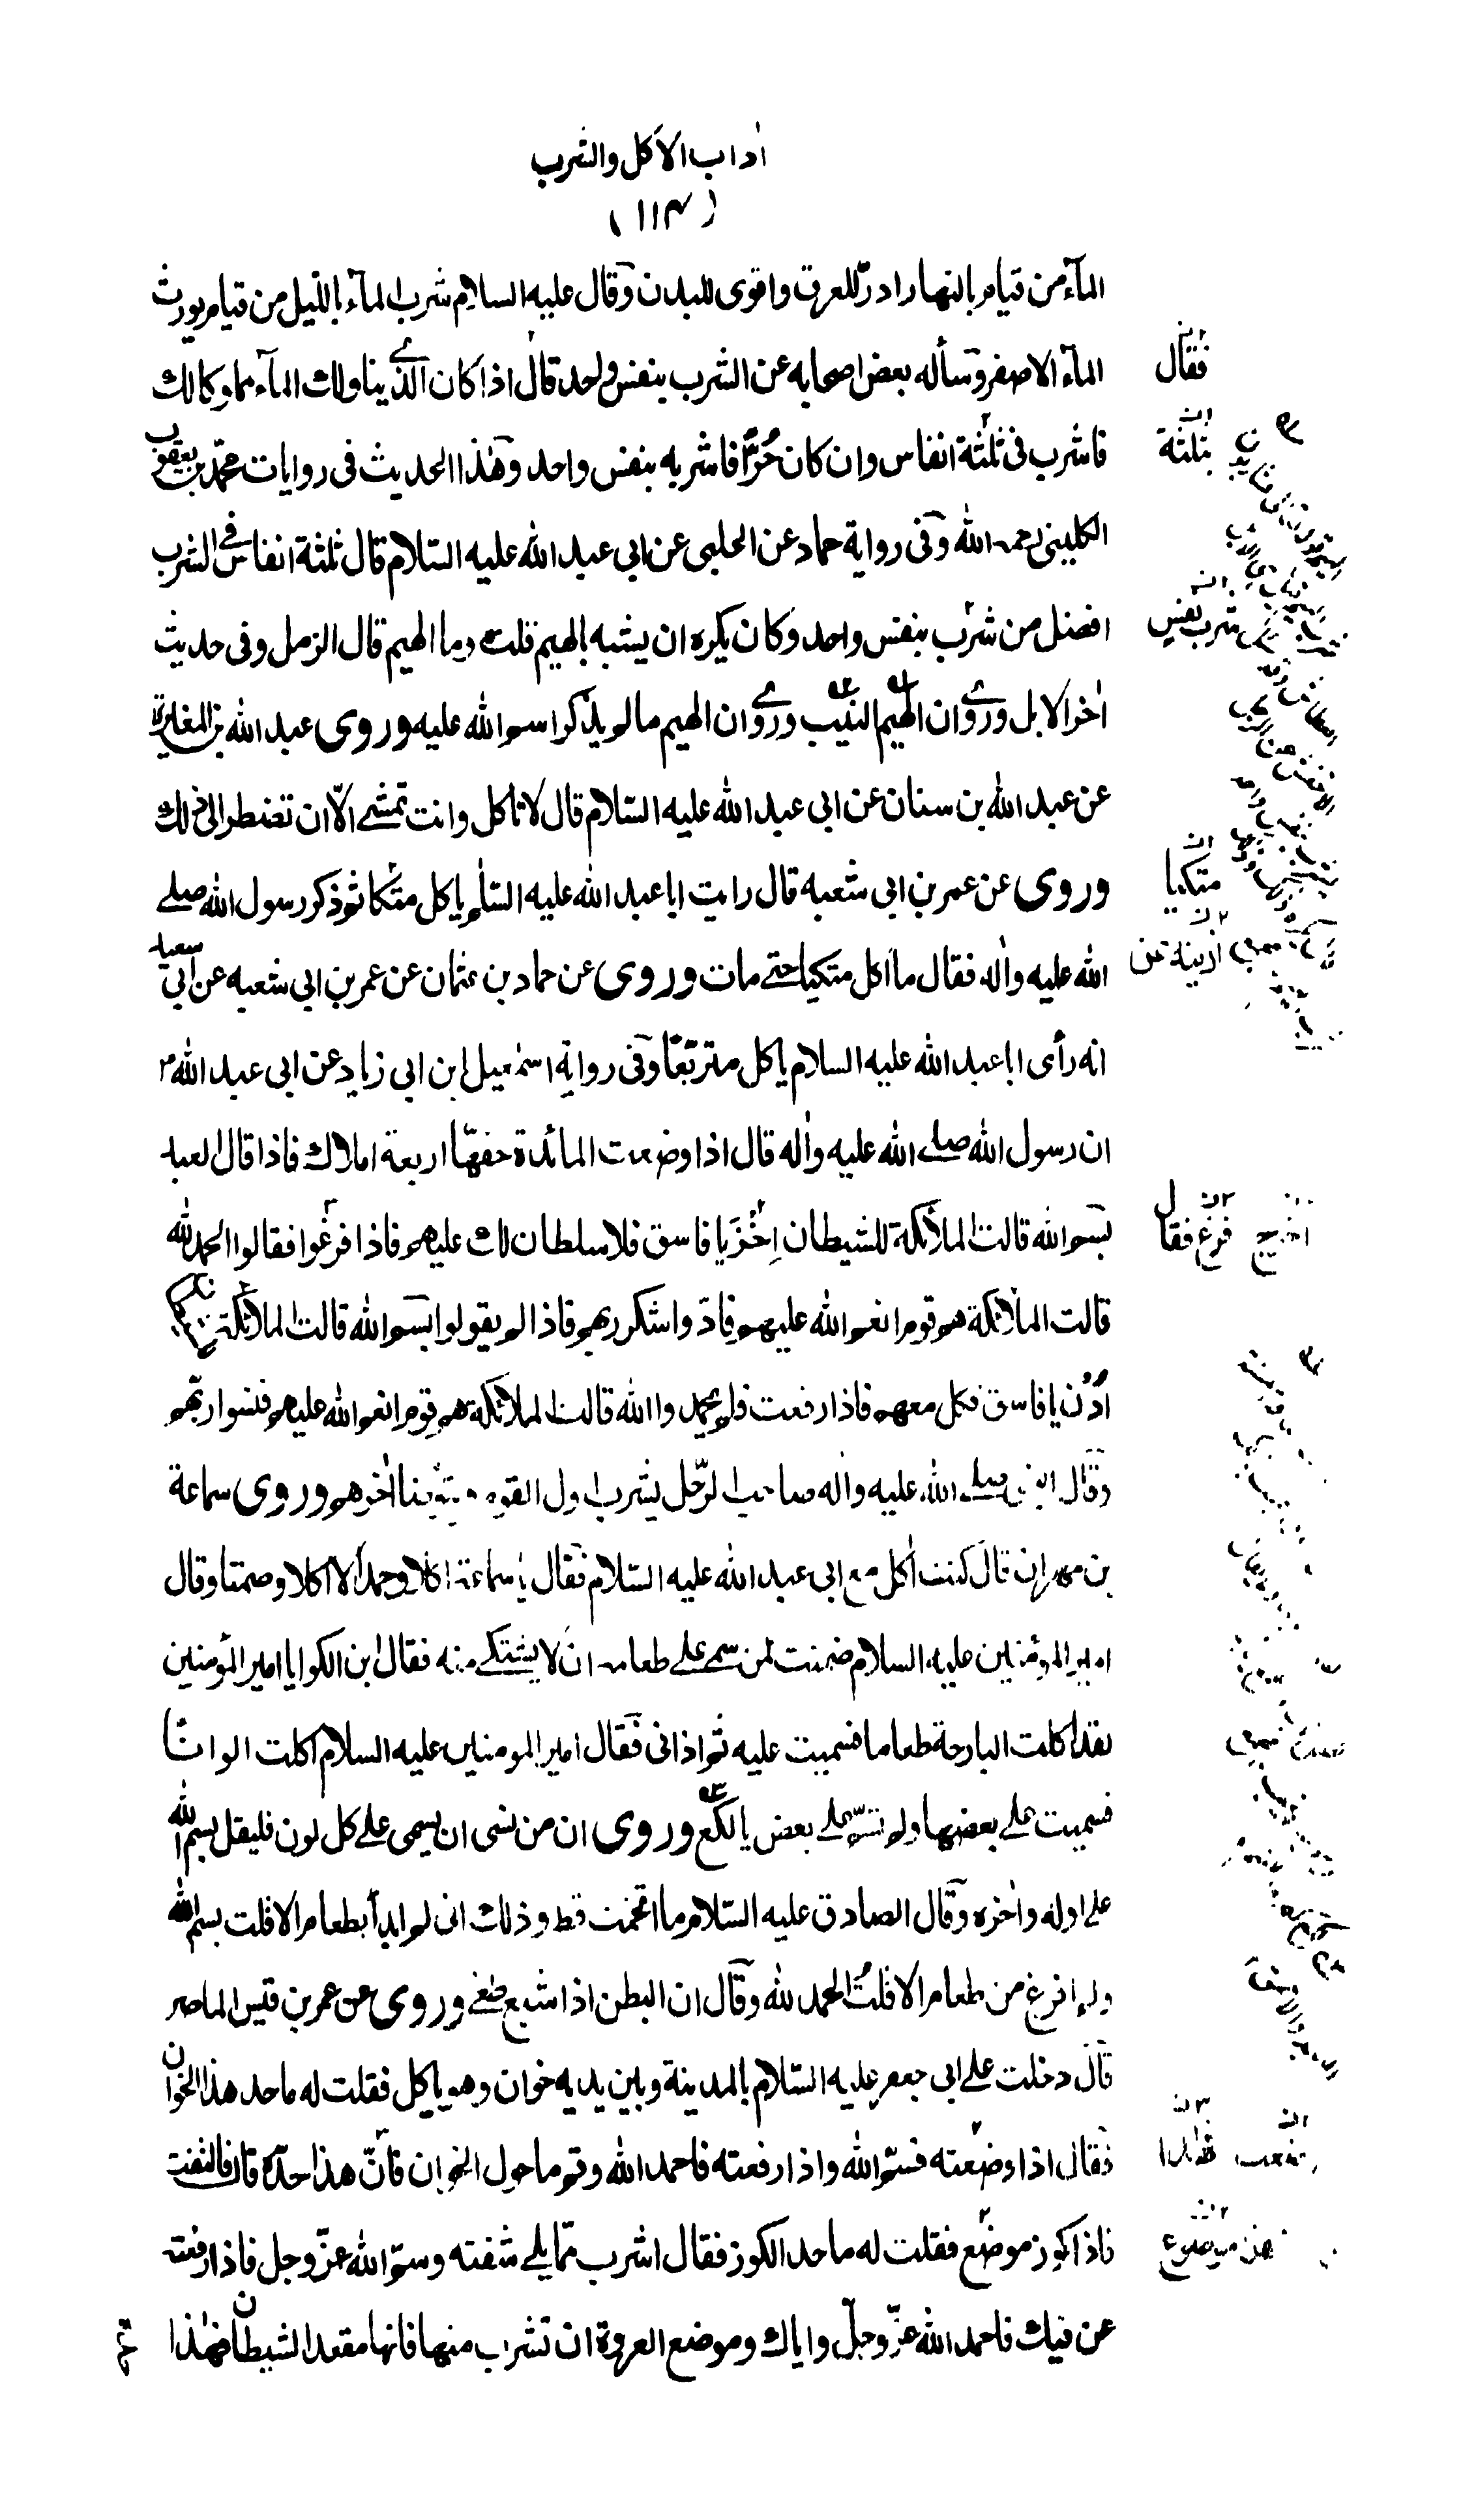 اٰداب الاكل والشرب
(۱۱۴)
المآء من قيام بالنهار ادرّ للعرق واقوى للبدن وقال عليه السلام شرب المآء بالليل من قيام يورث
المآء الاصفر وسأله بعض اصحابه عن الشرب بنفس واحد قال اذا كان الذى يناولك المآء مملوكا لك
فاشرب فى ثلثة انفاس وان كان حُرًّا فاشربه بنفس واحد وهذا الحديث فى روايات محمد بن يعقوب
الكلينى رحمه الله وفى رواية حماد عن الحلبى عن ابى عبد الله عليه السّلام قال ثلثة انفاس فى الشرب
افضل من شرب بنفس واحد وكان يكره ان يشبه بالهيم قلت وما الهيم قال الزمل وفى حديث
اٰخر الابل وروى ان الهيم النيب وروى ان الهيم ما لم يذكر اسم الله عليه وروى عبد الله بن المغيرة
عن عبد الله بن سنان عن ابى عبد الله عليه السّلام قال لا تاكل وانت تمشى الّا ان تضطر الى ذلك
وروى عن عمر بن ابى شعبه قال رايت ابا عبد الله عليه السّلم ياكل متكئا ثم ذكر رسول الله صلى
الله عليه واٰله فقال ما اكل متكيا حتى مات وروى عن حماد بن عثمان عن عمر بن ابى شعبه عن ابى سعيد
انه رأى ابا عبد الله عليه السلام ياكل متربّعًا وفى رواية اسمٰعيل ابن ابى زياد عن ابى عبد الله ۴
ان رسول الله صلى الله عليه واٰله قال اذا وضعت المائدة حفهّا اربعة املاك فاذا قال العبد
بسم الله قالت الملائكة للشيطان اِخْزَ يا فاسق فلا سلطان لك عليهم فاذا فرغوا فقالوا الحمد لله
قالت الملائكة هم قوم انعم الله عليهم فادّوا شكر ربهم فاذا لم يقولوا بسم الله قالت الملائكة
اُدْن يا فاسق فكل معهم فاذا رفعت ولم يحمدوا الله قالت الملائكة هم قوم انعم الله عليهم فنسوا ربّهم
وقال النبى صلى الله عليه واٰله صاحب الرّحل يشرب اول القوم ويتوضّأ اٰخرهم وروى سماعة
بن مهران قال كنت اٰكل مع ابى عبد الله عليه السّلام فقال يا سماعة اكلا وحمدا لا اكلا وصمتا وقال
امير المؤمنين عليه السلام ضمنت لمن سمى على طعامه ان لا يشتكى منه فقال ابن الكوا يا امير المؤمنين
لقد اكلت البارحة طعاما فسميت عليه ثم اذانى فقال امير المومنين عليه السلام اكلت الوانًا
فسميت على بعضها ولم تسمّ على بعض يا لكع وروى ان من نسى ان يسمى على كل لون فليقل بسم الله
على اوله واٰخره وقال الصادق عليه السّلام ما اتخمت قط وذلك انى لم ابدأ بطعام الا قلت بسم الله
ولم افرغ من طعام الا قلتُ الحمد لله وقال ان البطن اذا شبع طغى وروى عن عمر بن قيس الماصر
قال دخلت على ابى جعفر عليه السّلام بالمدينة وبين يديه خوان وهو ياكل فقلت له ما حد هذا الخوان
فقال اذا وضعته فسمّ الله واذا رفعته فاحمد الله وقم ما حول الخوان فانّ هذا حدّه قال فالتفت
فاذا كوز موضع فقلت له ما حد الكوز فقال اشرب ممّا يلى شفته وسمّ الله عزّ وجل فاذا رفعته
عن فيك فاحمد الله عزّ وجلّ واياك وموضع العروة ان تشرب منها فانها مقعد الشيطان فهٰذا
فقال
بثلثة
شرب نفس
متكيا
اذينة عن
فرغ فقال
موضوع